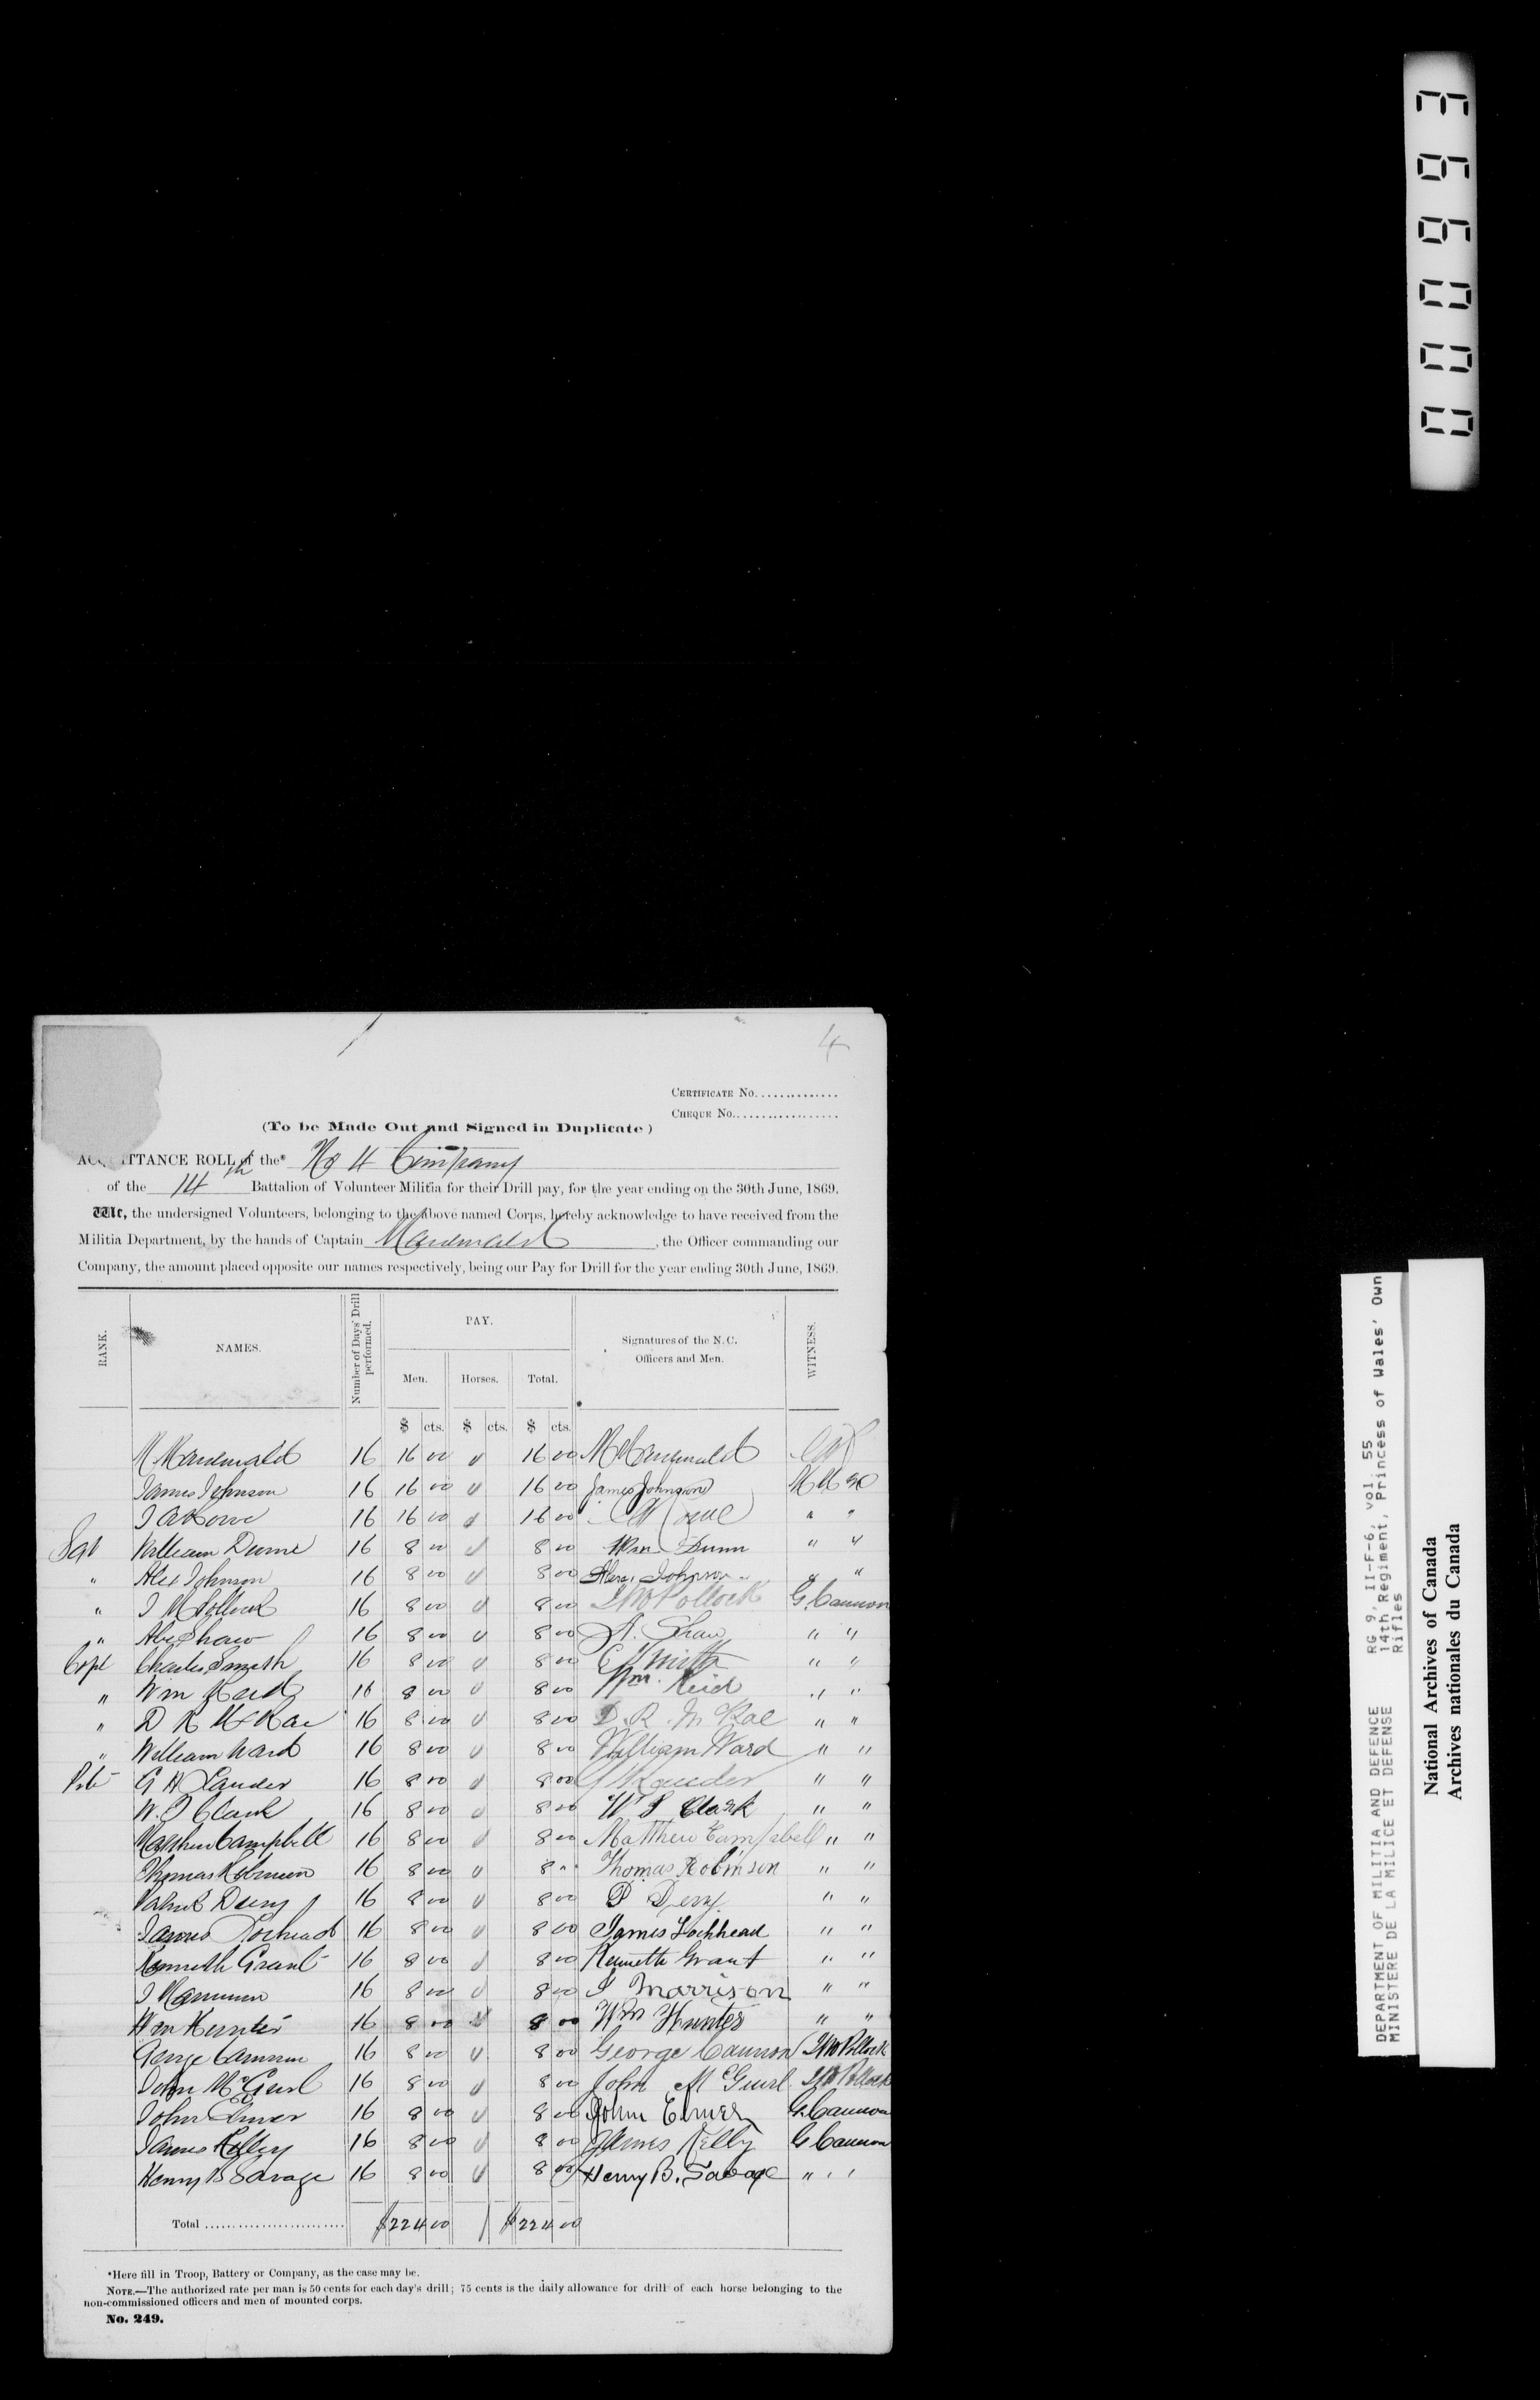 4
CERTIFICATE No..............
CHEQUE No.................
(To be Made Out and Signed in Duplicate)
ACQUITTANCE ROLL of the* No 4 Company
of the 14th Battalion of Volunteer Militia for their Drill pay, for the year ending on the 30th June, 1869.
We, the undersigned Volunteers, belonging to the above named Corps, hereby acknowledge to have received from the
Militia Department, by the hands of Captain , the Officer commanding our
Company, the amount placed opposite our names respectively, being our Pay for Drill for the year ending 30th June, 1869.
RANK. NAMES. Number of Days' Drill performed. PAY. Signatures of the N.C. Officers and Men. WITNESS.
Men. Horses. Total.
$ cts. $ cts. $ cts.
16 16 00 16 00
James Johnson 16 16 00 16 00 James Johnson
16 16 00 16 00 " "
Sgt William Dunne 16 8 00 8 00 Wm. Dunn " "
" Alex Johnson 16 8 00 8 00 Alex. Johnson " "
" J W Pollock 16 8 00 8 00 J W Pollock G. Cannon
" Abe Shaw 16 8 00 8 00 A. Shaw " "
Corpl Charles Smith 16 8 00 8 00 C Smith " "
" Wm Reid 16 8 00 8 00 Wm. Reid " "
" D R McRae 16 8 00 8 00 D. R. McRae " "
" William Ward 16 8 00 8 00 William Ward " "
Pvte G H Lauder 16 8 00 8 00 Lauder " "
W. S Clark 16 8 00 8 00 W S Clark " "
Matthew Campbell 16 8 00 8 00 Matthew Campbell " "
Thomas Robinson 16 8 00 8 " Thomas Robinson " "
Patrick Derry 16 8 00 8 00 P Derry " "
James Lochead 16 8 00 8 00 James Lochhead " "
Kenneth Grant 16 8 00 8 00 Kenneth Grant " "
J Morrison 16 8 00 8 00 J Morrison " "
Wm Hunter 16 8 00 8 00 Wm Hunter " "
George Cannon 16 8 00 8 00 George Cannon J W Pollock
John McGuirl 16 8 00 8 00 John McGuirl J W Pollock
John Elmer 16 8 00 8 00 John Elmer G. Cannon
James Kelly 16 8 00 8 00 James Kelly G Cannon
Henry B Savage 16 8 00 8 00 Henry B. Savage " "
Total .......................... $224 00 $224 00
*Here fill in Troop, Battery or Company, as the case may be.
NOTE.—The authorized rate per man is 50 cents for each day's drill; 75 cents is the daily allowance for drill of each horse belonging to the
non-commissioned officers and men of mounted corps.
No. 249.
000993
DEPARTMENT OF MILITIA AND DEFENCE RG 9, II-F-6, vol. 55
MINISTERE DE LA MILICE ET DEFENSE 14th Regiment, Princess of Wales' Own
Rifles
National Archives of Canada
Archives nationales du Canada